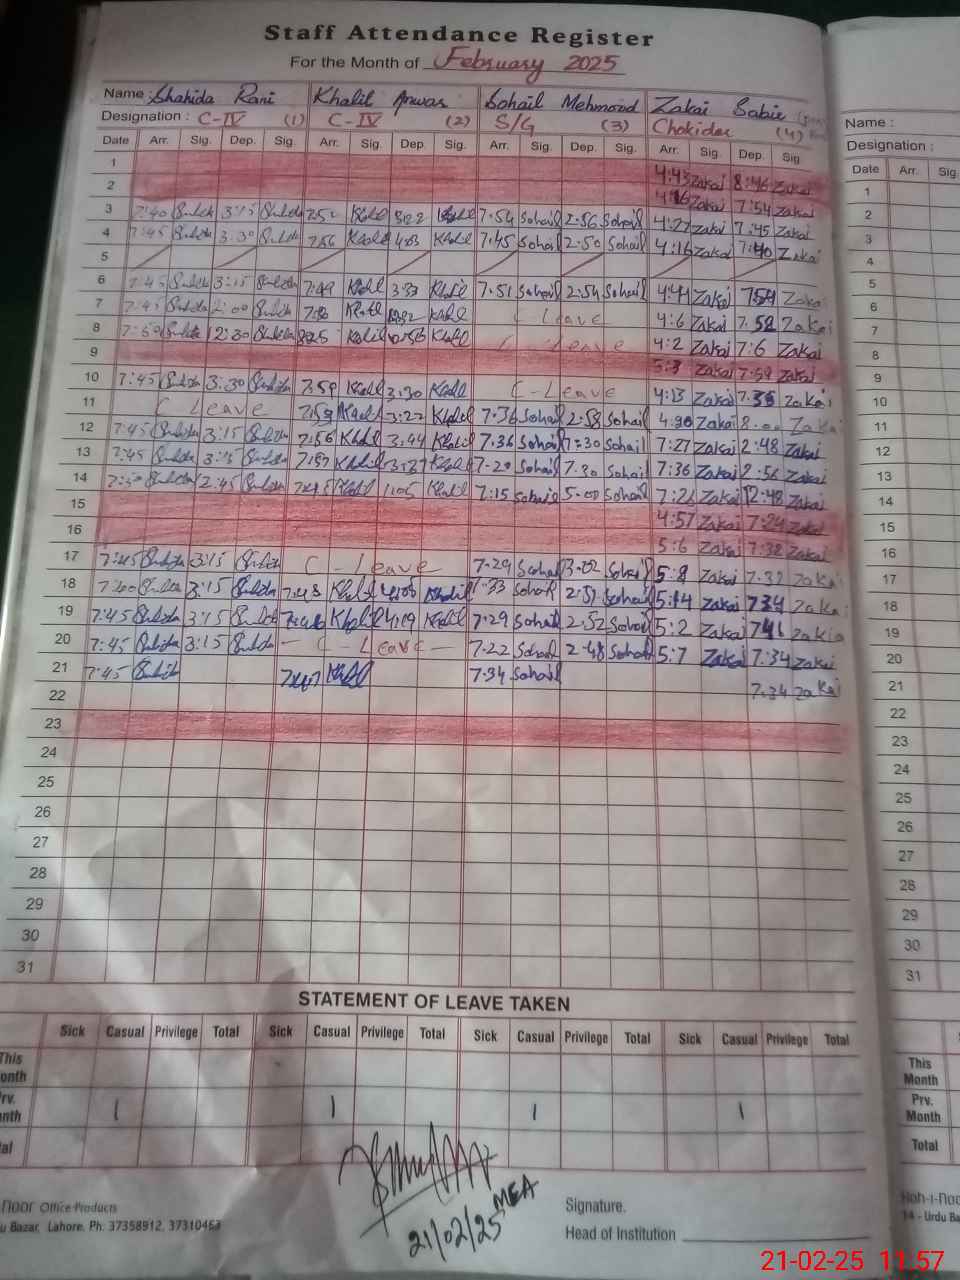 Staff Attendance Register
For the Month of February 2025
Name : Shahida Rani Khalil Anwar Sohail Mehmood Zakai Sabir
Designation : C-IV (1) C-IV (2) S/G (3) Chokidar (4)
Date Arr. Sig. Dep. Sig. Arr. Sig. Dep. Sig. Arr. Sig. Dep. Sig. Arr. Sig. Dep. Sig.
1 4:43 Zakai 8:46 Zakai
2 4:16 Zakai 7:54 Zakai
3 7:40 3:15 7:52 Khalil Khalil 7:54 Sohail 2:56 Sohail 4:27 Zakai 7:45 Zakai
4 7:45 3:30 7:56 Khalil 4:03 Khalil 7:45 Sohail 2:50 Sohail 4:16 Zakai 7:40 Zakai
5
6 7:45 3:15 7:49 Khalil Khalil 7:51 Sohail 2:54 Sohail 4:41 Zakai 7:54 Zakai
7 7:45 2:00 Khalil Khalil C Leave 4:6 Zakai 7:52 Zakai
8 12:30 Khalil Khalil C Leave 4:2 Zakai 7:6 Zakai
9 5:3 Zakai 7:59 Zakai
10 7:45 3:30 7:59 Khalil 3:30 Khalil C-Leave 4:13 Zakai 7:35 Zakai
11 C Leave 7:59 Khalil 3:27 Khalil 7:36 Sohail 2:58 Sohail 4:30 Zakai 8:00 Zakai
12 7:45 3:15 7:56 Khalil 3:44 Khalil 7:36 Sohail 7:30 Sohail 7:27 Zakai 2:48 Zakai
13 7:45 3:15 7:57 Khalil 3:37 Khalil 7:20 Sohail 7:30 Sohail 7:36 Zakai 2:56 Zakai
14 7:30 12:45 Khalil Khalil 7:15 Sohail 5:00 Sohail 7:26 Zakai 12:48 Zakai
15 4:57 Zakai 7:24 Zakai
16 5:6 Zakai 7:32 Zakai
17 7:45 3:15 C-Leave 7:29 Sohail 3:02 Sohail 5:8 Zakai 7:32 Zakai
18 7:40 3:15 7:48 Khalil Khalil Sohail Sohail 5:14 Zakai 7:34 Zakai
19 7:45 3:15 Khalil 4:19 Khalil 7:29 Sohail 2:52 Sohail 5:2 Zakai 7:41 Zakai
20 7:45 3:15 - C-Leave - 7:22 Sohail 2:48 Sohail 5:7 Zakai 7:34 Zakai
21 7:45 7:47 Khalil 7:34 Sohail 7:34 Zakai
22
23
24
25
26
27
28
29
30
31
STATEMENT OF LEAVE TAKEN
Sick Casual Privilege Total Sick Casual Privilege Total Sick Casual Privilege Total Sick Casual Privilege Total
This
onth
rv. 1 1 1 1
nth
al
21/02/25 MEA
Signature.
Head of Institution
noor Office Products
u Bazar, Lahore. Ph: 37358912, 37310463
Name :
Designation :
Date Arr. Sig.
1
2
3
4
5
6
7
8
9
10
11
12
13
14
15
16
17
18
19
20
21
22
23
24
25
26
27
28
29
30
31
This
Month
Prv.
Month
Total
Koh-i-noo
14 - Urdu Ba
21-02-25 11:57